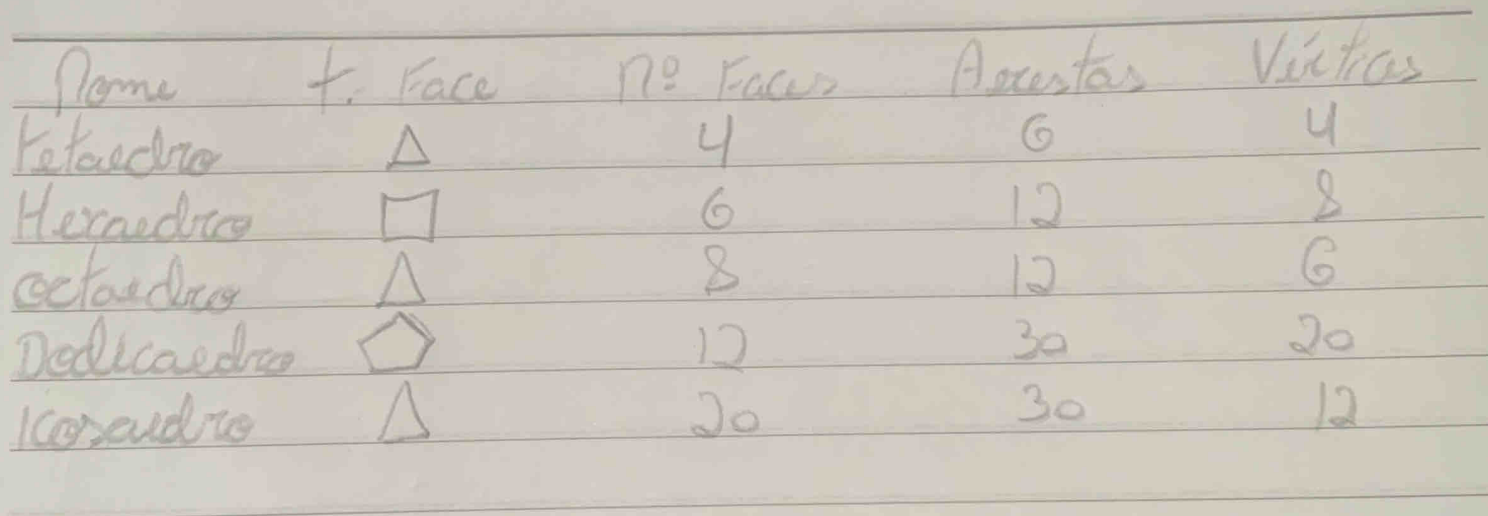 Nome t. Face nº Faces Arestas Vértices
tetaedro △ 4 6 4
Hexaedro □ 6 12 8
octaedro △ 8 12 6
Dodecaedro ⬠ 12 30 20
Icosaedro △ 20 30 12